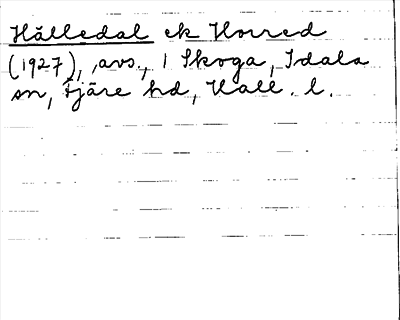 Hålledal ek Horred
(1927), avs., 1 Skoga, Idala
sn, Fjäre hd, Hall. l.